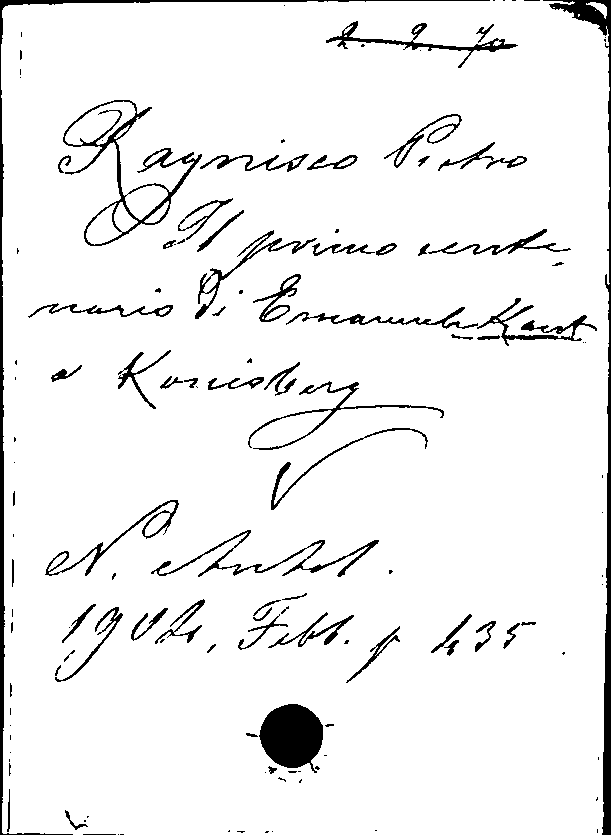 2. 2. 70
Ragnisco Pietro
Il primo cente-
nario di Emanuele Kant
a Konisberg
N. Antol.
1904, Febb. p 435